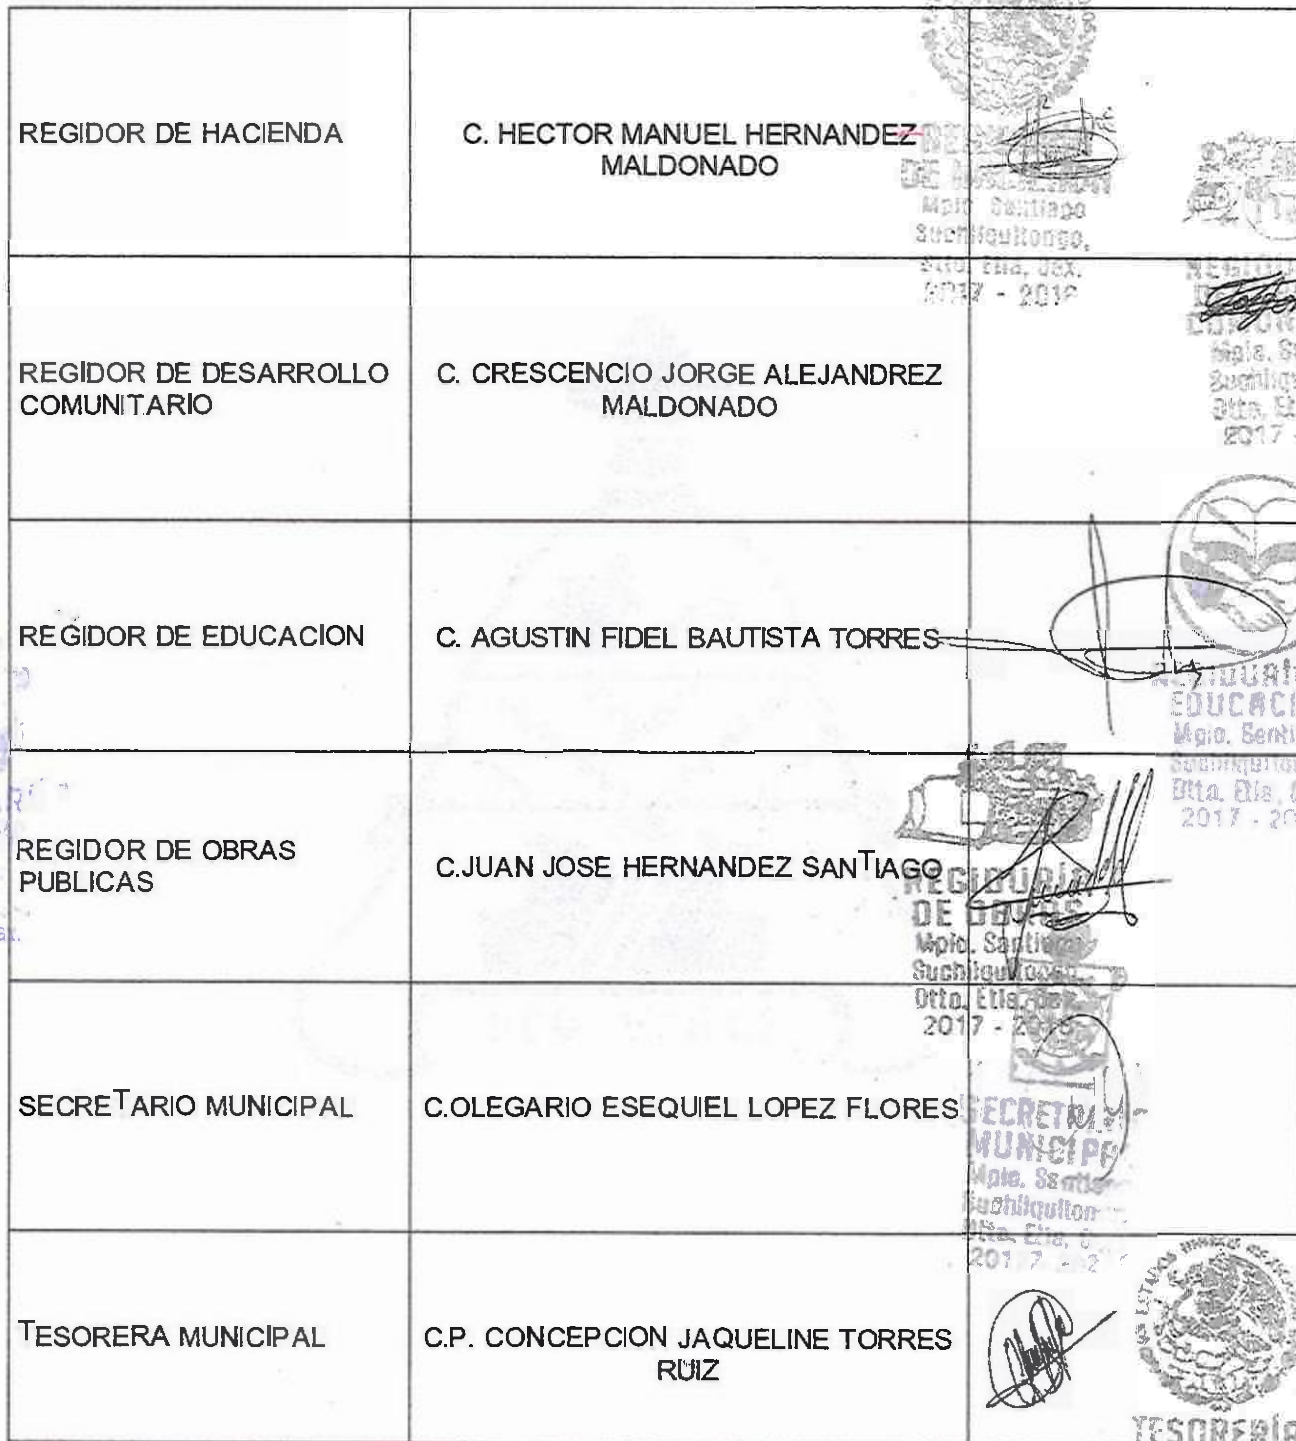 REGIDOR DE HACIENDA
C. HECTOR MANUEL HERNANDEZ
MALDONADO
DE
Mpio. Santiago
Suchilquitongo,
Dtto. Etla, Oax.
2017 -
REGIDOR DE DESARROLLO
COMUNITARIO
C. CRESCENCIO JORGE ALEJANDREZ
MALDONADO
2017 -
REGIDOR DE EDUCACION
C. AGUSTIN FIDEL BAUTISTA TORRES
EDUCACI
Mpio. Santi
Dtto. Etla,
2017 - 20
REGIDOR DE OBRAS
PUBLICAS
C.JUAN JOSE HERNANDEZ SANTIAGO
REGIDURÍA
DE OBRAS
Mpio. Santi
Dtto. Etla,
2017 -
SECRETARIO MUNICIPAL
C.OLEGARIO ESEQUIEL LOPEZ FLORES
SECRET
MUNICIP
Mpio. Santi
Suchilquiton
Dtto. Etla,
TESORERA MUNICIPAL
C.P. CONCEPCION JAQUELINE TORRES
RUIZ
TESORERÍA